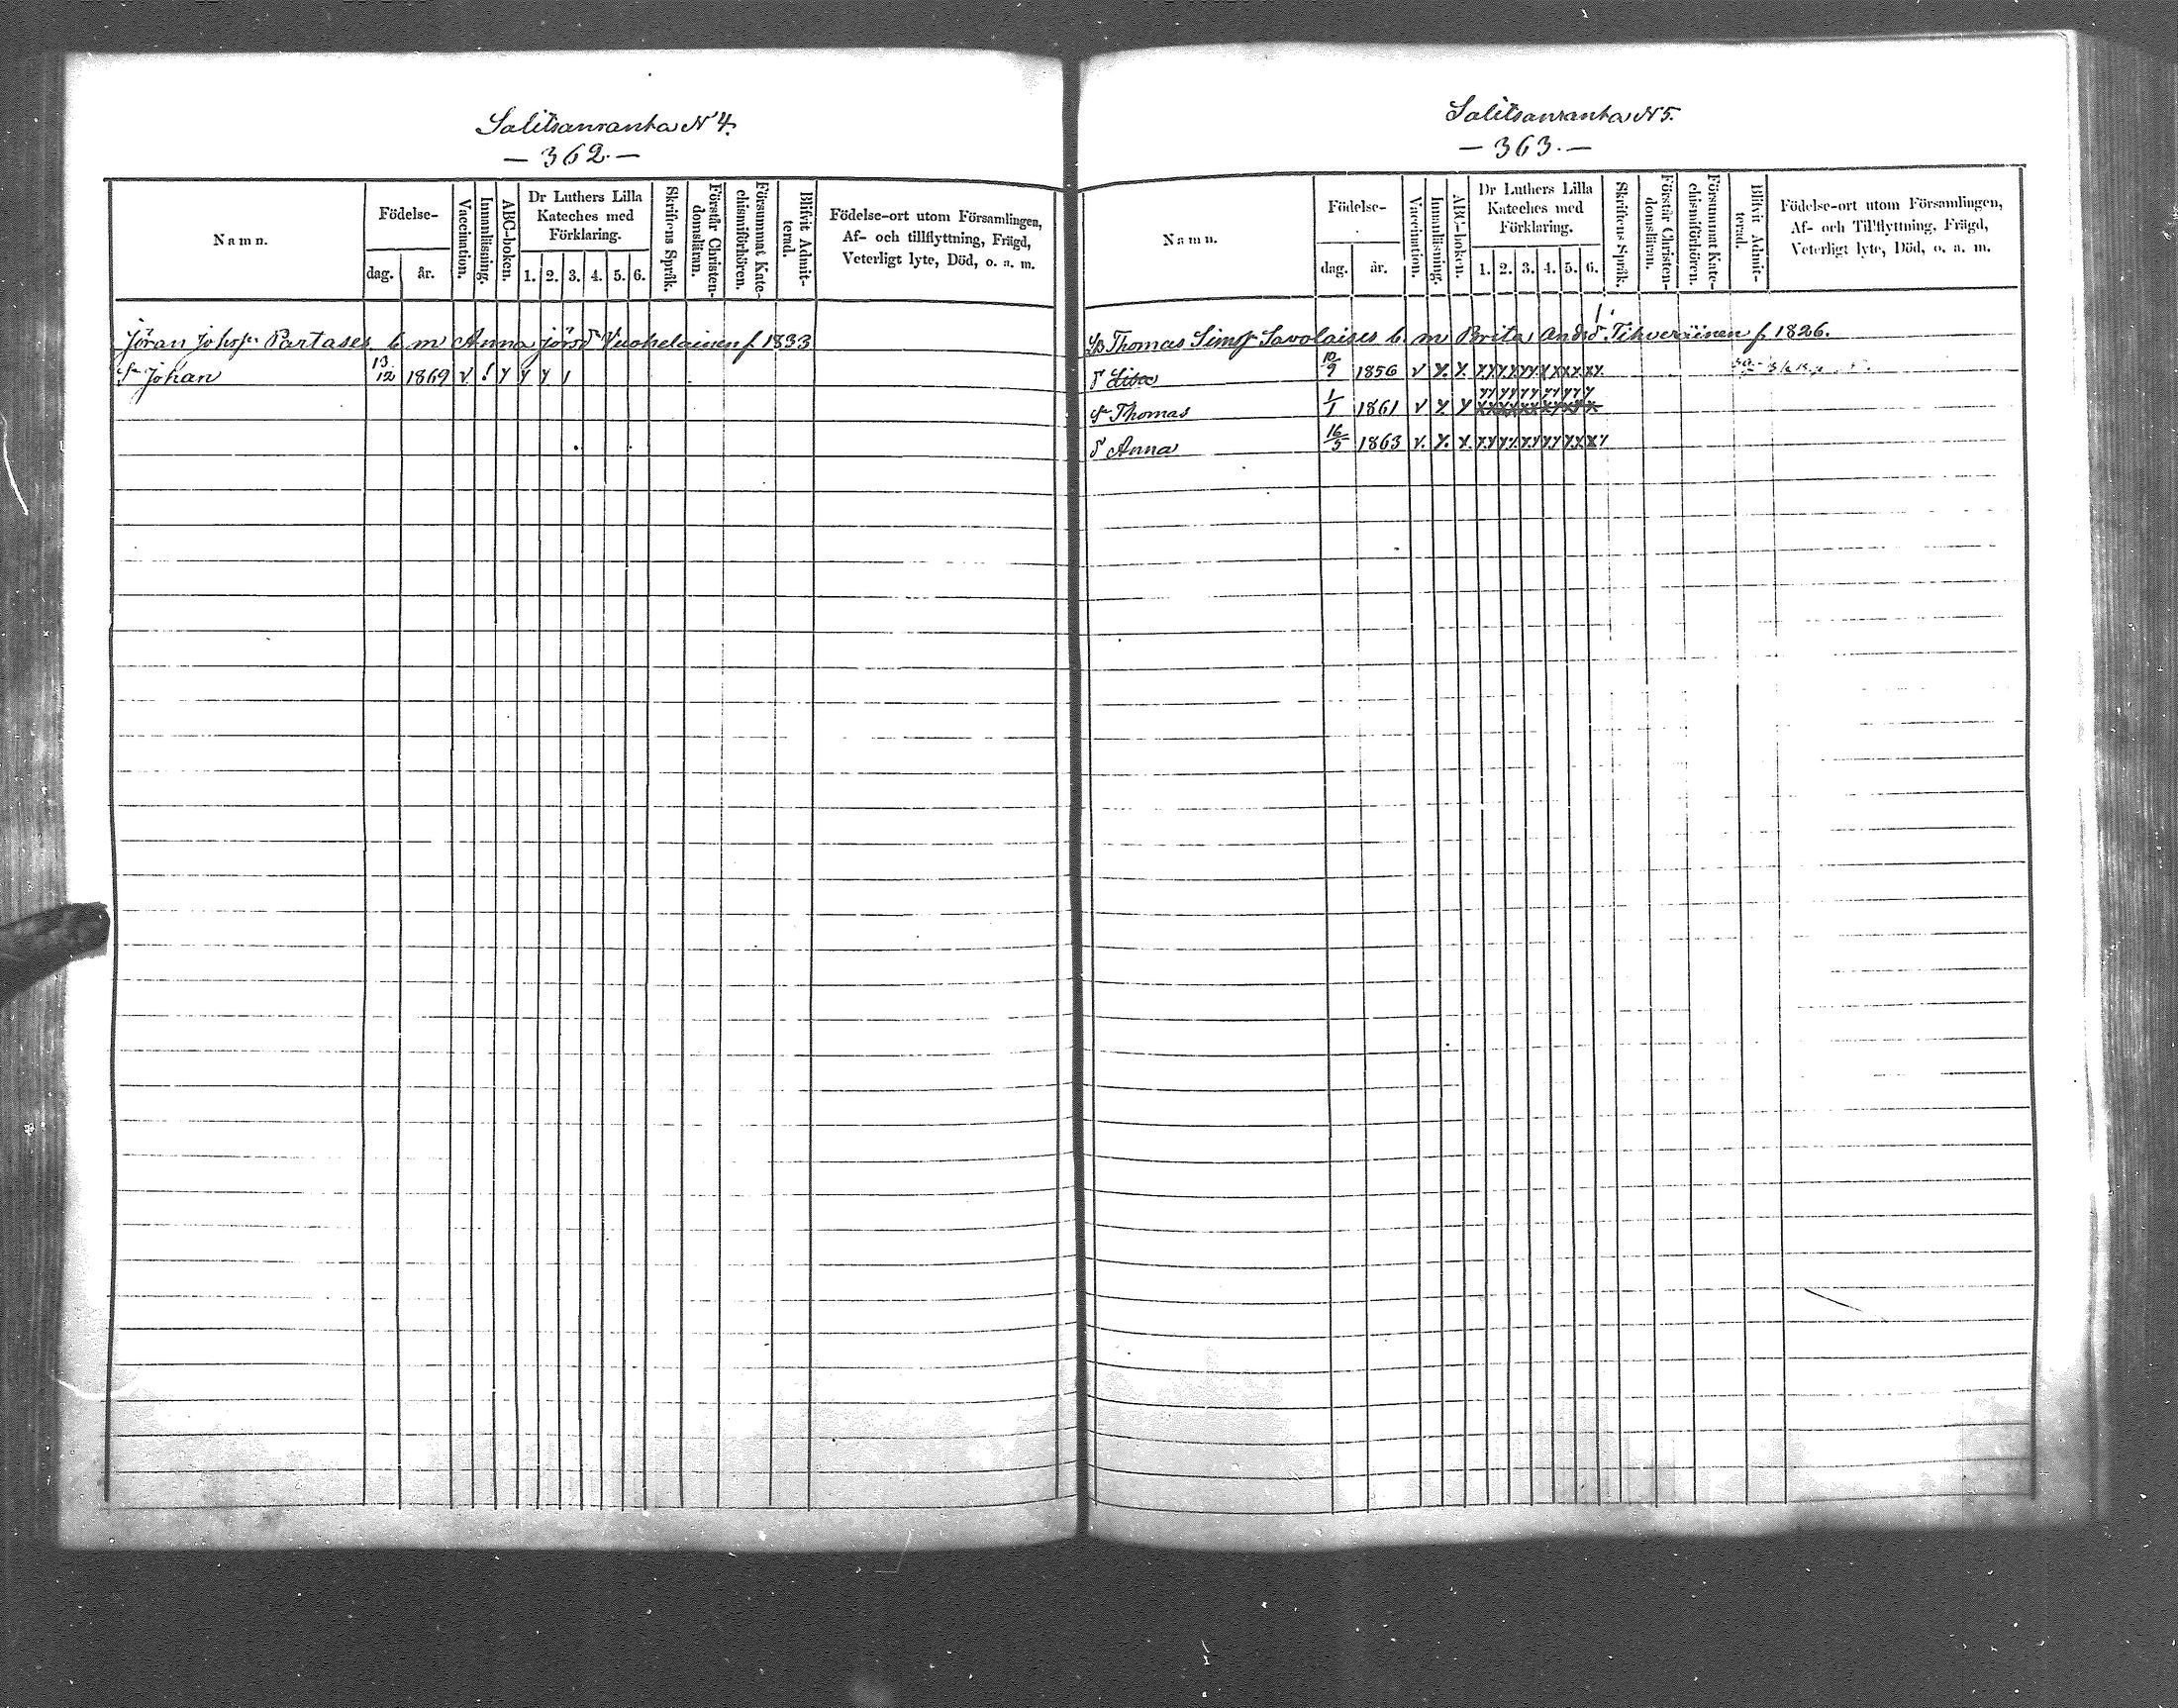 Salitsanranta N 4.
— 362. —
Namn.
Födelse-
dag.
år.
Vaccination.
Innanläsning.
ABC-boken.
Dr Luthers Lilla
Kateches med
Förklaring.
1. 2. 3. 4. 5. 6.
Skriftens Språk.
Förstår Christen-
domsläran.
Försummat Kate-
chismiförhören.
Blifvit Admit-
terad.
Födelse-ort utom Församlingen,
Af- och tillflyttning, Frägd,
Veterligt lyte, Död, o. a. m.
Jöran Johsn Partases b m Anna Jörsd Vuohelainen f 1833
S Johan 13/12 1869 v ! y y y 1
Salitsanranta N 5.
— 363. —
Namn.
Födelse-
dag.
år.
Vaccination.
Innanläsning.
ABC-boken.
Dr Luthers Lilla
Kateches med
Förklaring.
1. 2. 3. 4. 5. 6.
Skriftens Språk.
Förstår Christen-
domsläran.
Försummat Kate-
chismiförhören.
Blifvit Admit-
terad.
Födelse-ort utom Församlingen,
Af- och Tillflyttning, Frägd,
Veterligt lyte, Död, o. a. m.
Thomas Simsn Savolaises b m Brita Andsd Tihveräinen f 1826.
d Lisa 10/9 1856
S Thomas 1/1 1861
d Anna 16/5 1863